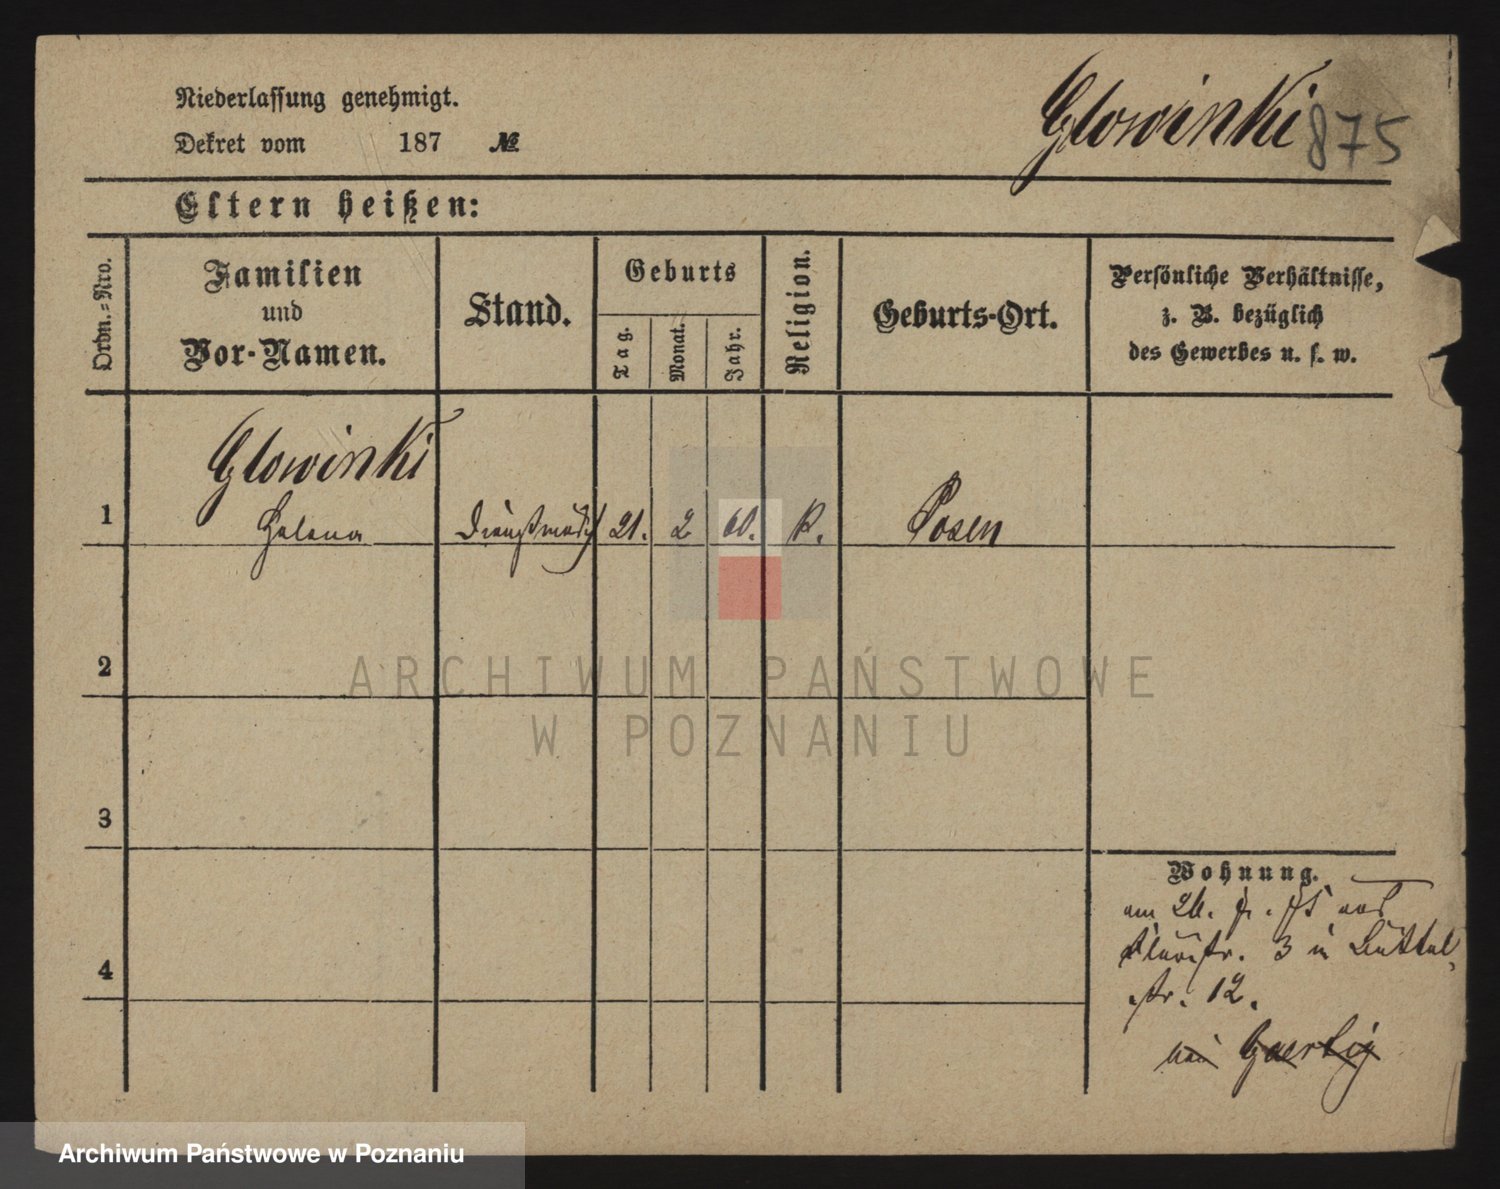 Niederlassung genehmigt.
Glowinki 875
Dekret vom 187 №
Eltern heißen:
Ordn.-Nro.
Familien
und
Vor-Namen.
Stand.
Geburts
Tag.
Monat.
Jahr.
Religion.
Geburts-Ort.
Persönliche Verhältnisse,
z. B. bezüglich
des Gewerbes u. s. w.
Glowinki
1 Helena Dienstmädch 21. 2 60. K. Posen
2
ARCHIWUM PAŃSTWOWE
W POZNANIU
3
Wohnung.
am 26.
3 in Büttel
str. 12.
bei Gaertig
4
Archiwum Państwowe w Poznaniu